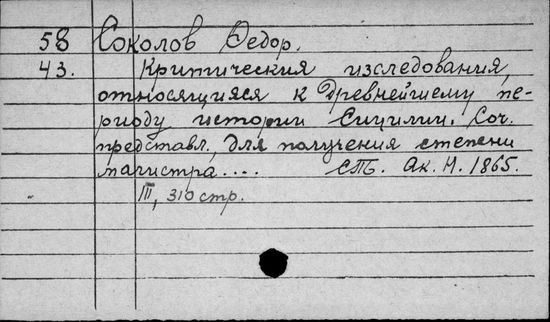 58 Соколов Федор.
43. Критическия изследования,
относящияся к Древнейшему пе-
риоду истории Сицилии. Соч.
представл. для получения степени
магистра.... СПб. Ак. Н. 1865.
III, 310 стр.